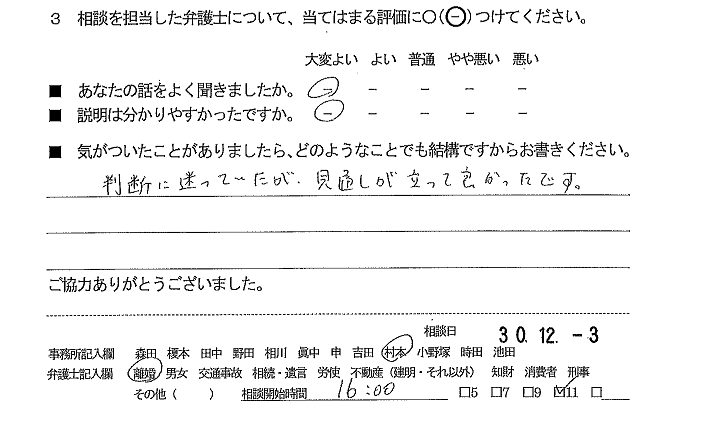 ３ 相談を担当した弁護士について、当てはまる評価に○(⊖)つけてください。
大変よい よい 普通 やや悪い 悪い
■ あなたの話をよく聞きましたか。 － － － － －
■ 説明は分かりやすかったですか。 － － － － －
■ 気がついたことがありましたら、どのようなことでも結構ですからお書きください。
判断に迷っていたが、見通しが立って良かったです。
ご協力ありがとうございました。
相談日 30.12.-3
事務所記入欄 森田 榎本 田中 野田 相川 眞中 申 吉田 村本 小野塚 時田 池田
弁護士記入欄 離婚 男女 交通事故 相続・遺言 労使 不動産（建明・それ以外） 知財 消費者 刑事
その他（ ） 相談開始時間 16:00 □5 □7 □9 ☑11 □